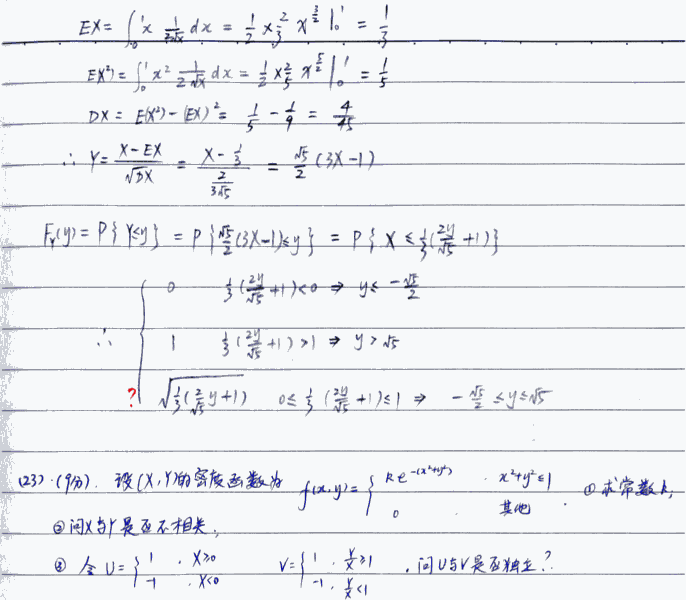 EX = ∫₀¹ x 1/(2√x) dx = 1/2 × 2/3 x^(3/2) |₀¹ = 1/3
E(X²) = ∫₀¹ x² 1/(2√x) dx = 1/2 × 2/5 x^(5/2) |₀¹ = 1/5
DX = E(X²) - (EX)² = 1/5 - 1/9 = 4/45
∴ Y = (X - EX)/√DX = (X - 1/3)/(2/(3√5)) = √5/2 (3X-1)
F_Y(y) = P{Y≤y} = P{√5/2 (3X-1)≤y} = P{X ≤ 1/3 (2y/√5 +1)}
0 1/3 (2y/√5 +1)<0 ⇒ y≤ -√5/2
∴ { 1 1/3 (2y/√5 +1)>1 ⇒ y>√5
? √(1/3 (2/√5 y+1)) 0≤ 1/3 (2y/√5 +1)≤1 ⇒ -√5/2 ≤y≤√5
(23)·(9分). 设(X,Y)的密度函数为 f(x,y)= { k e^(-(x²+y²)) . x²+y²≤1 ① 求常数k;
0 . 其他 .
② 问X与Y是否不相关;
③ 令 U= { 1 . X≥0 V= { 1 . Y/X≥1 . 问U与V是否独立?
-1 . X<0 -1 . Y/X<1